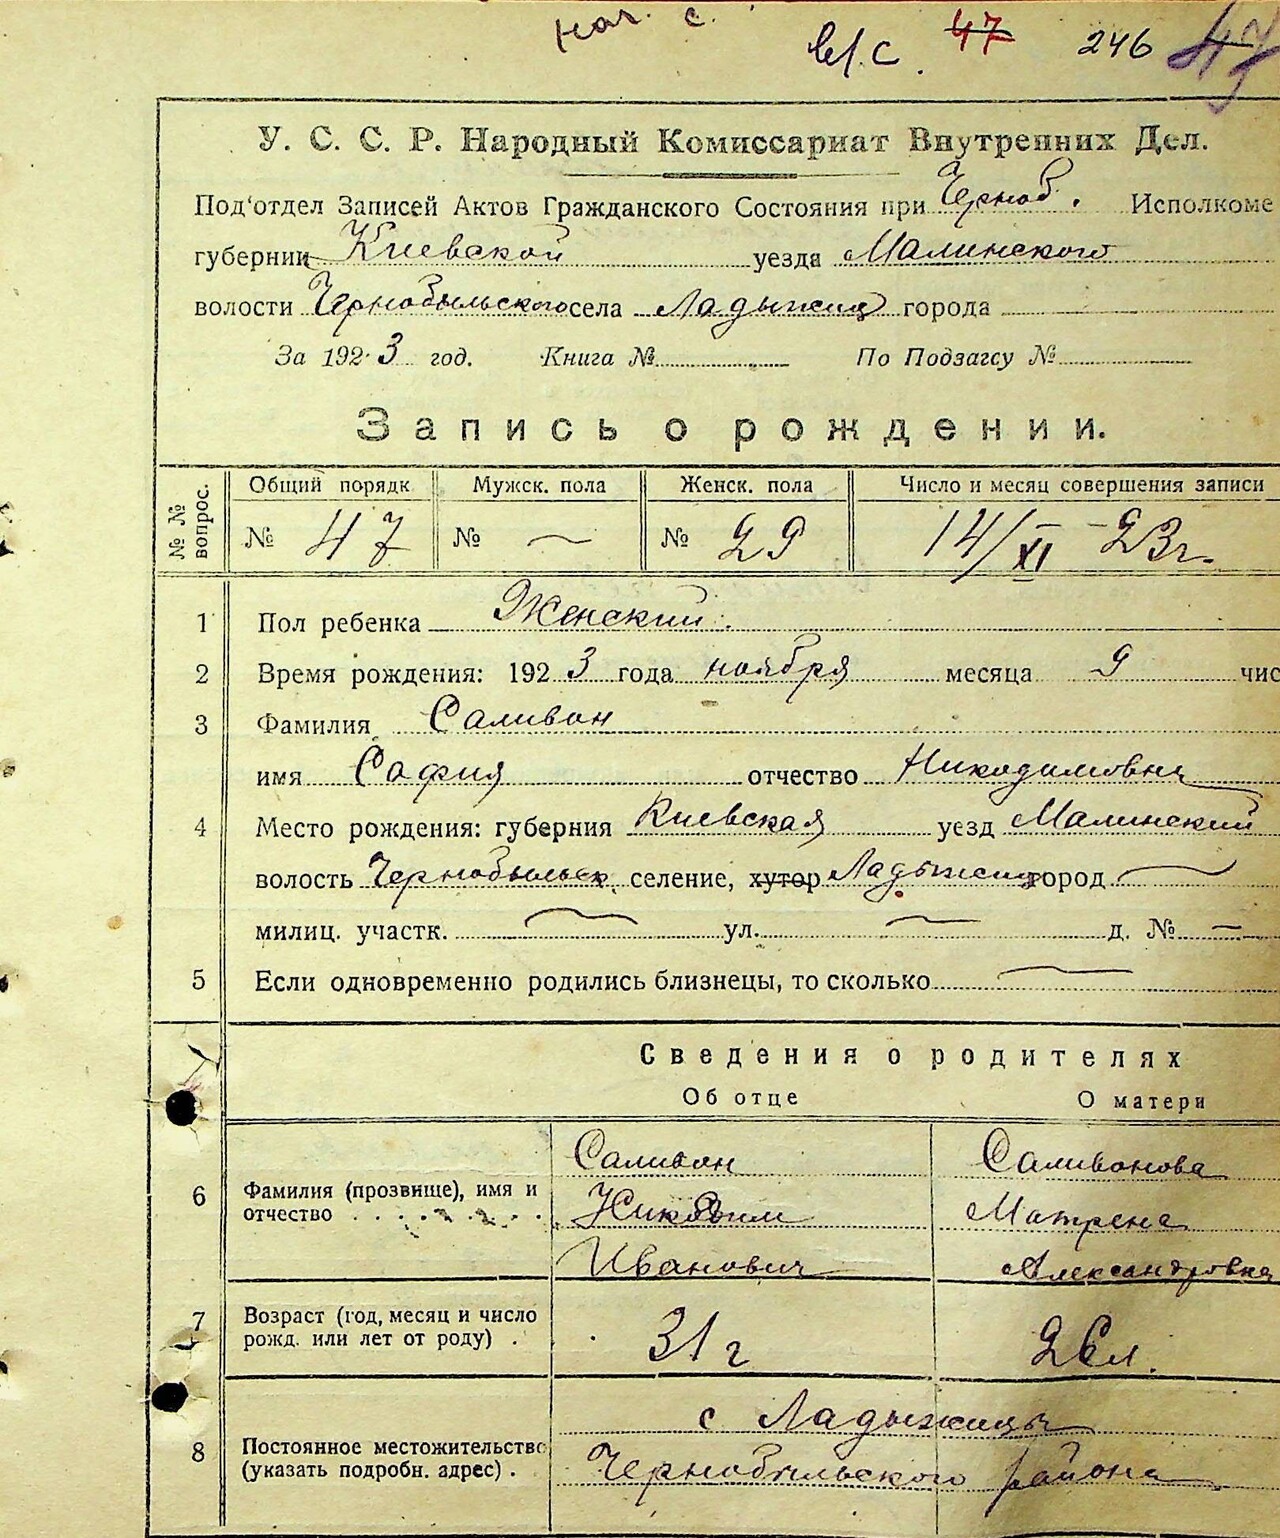 нач. с.
в/с. 47 246 47
У. С. С. Р. Народный Комиссариат Внутренних Дел.
Под'отдел Записей Актов Гражданского Состояния при Черноб. Исполкоме
губернии Киевской уезда Малинского
волости Чернобыльского села Ладыжич города
За 192 3 год. Книга № По Подзагсу №
Запись о рождении.
№ № вопрос. Общий порядк Мужск. пола Женск. пола Число и месяц совершения записи
№ 47 № — № 29 14/XI - 23 г.
1 Пол ребенка Женский.
2 Время рождения: 192 3 года ноября месяца 9 чис
3 Фамилия Саливон
имя София отчество Никодимовна
4 Место рождения: губерния Киевская уезд Малинский
волость Чернобыльск. селение, хутор Ладыжичи город —
милиц. участк. — ул. — д. № —
5 Если одновременно родились близнецы, то сколько —
Сведения о родителях
Об отце О матери
Саливон Саливонова
6 Фамилия (прозвище), имя и отчество Никодим Матрена
Иванович Александровна
7 Возраст (год, месяц и число рожд. или лет от роду) . 31 г 26 л.
с Ладыжичи
8 Постоянное местожительство (указать подробн. адрес) . Чернобыльского района